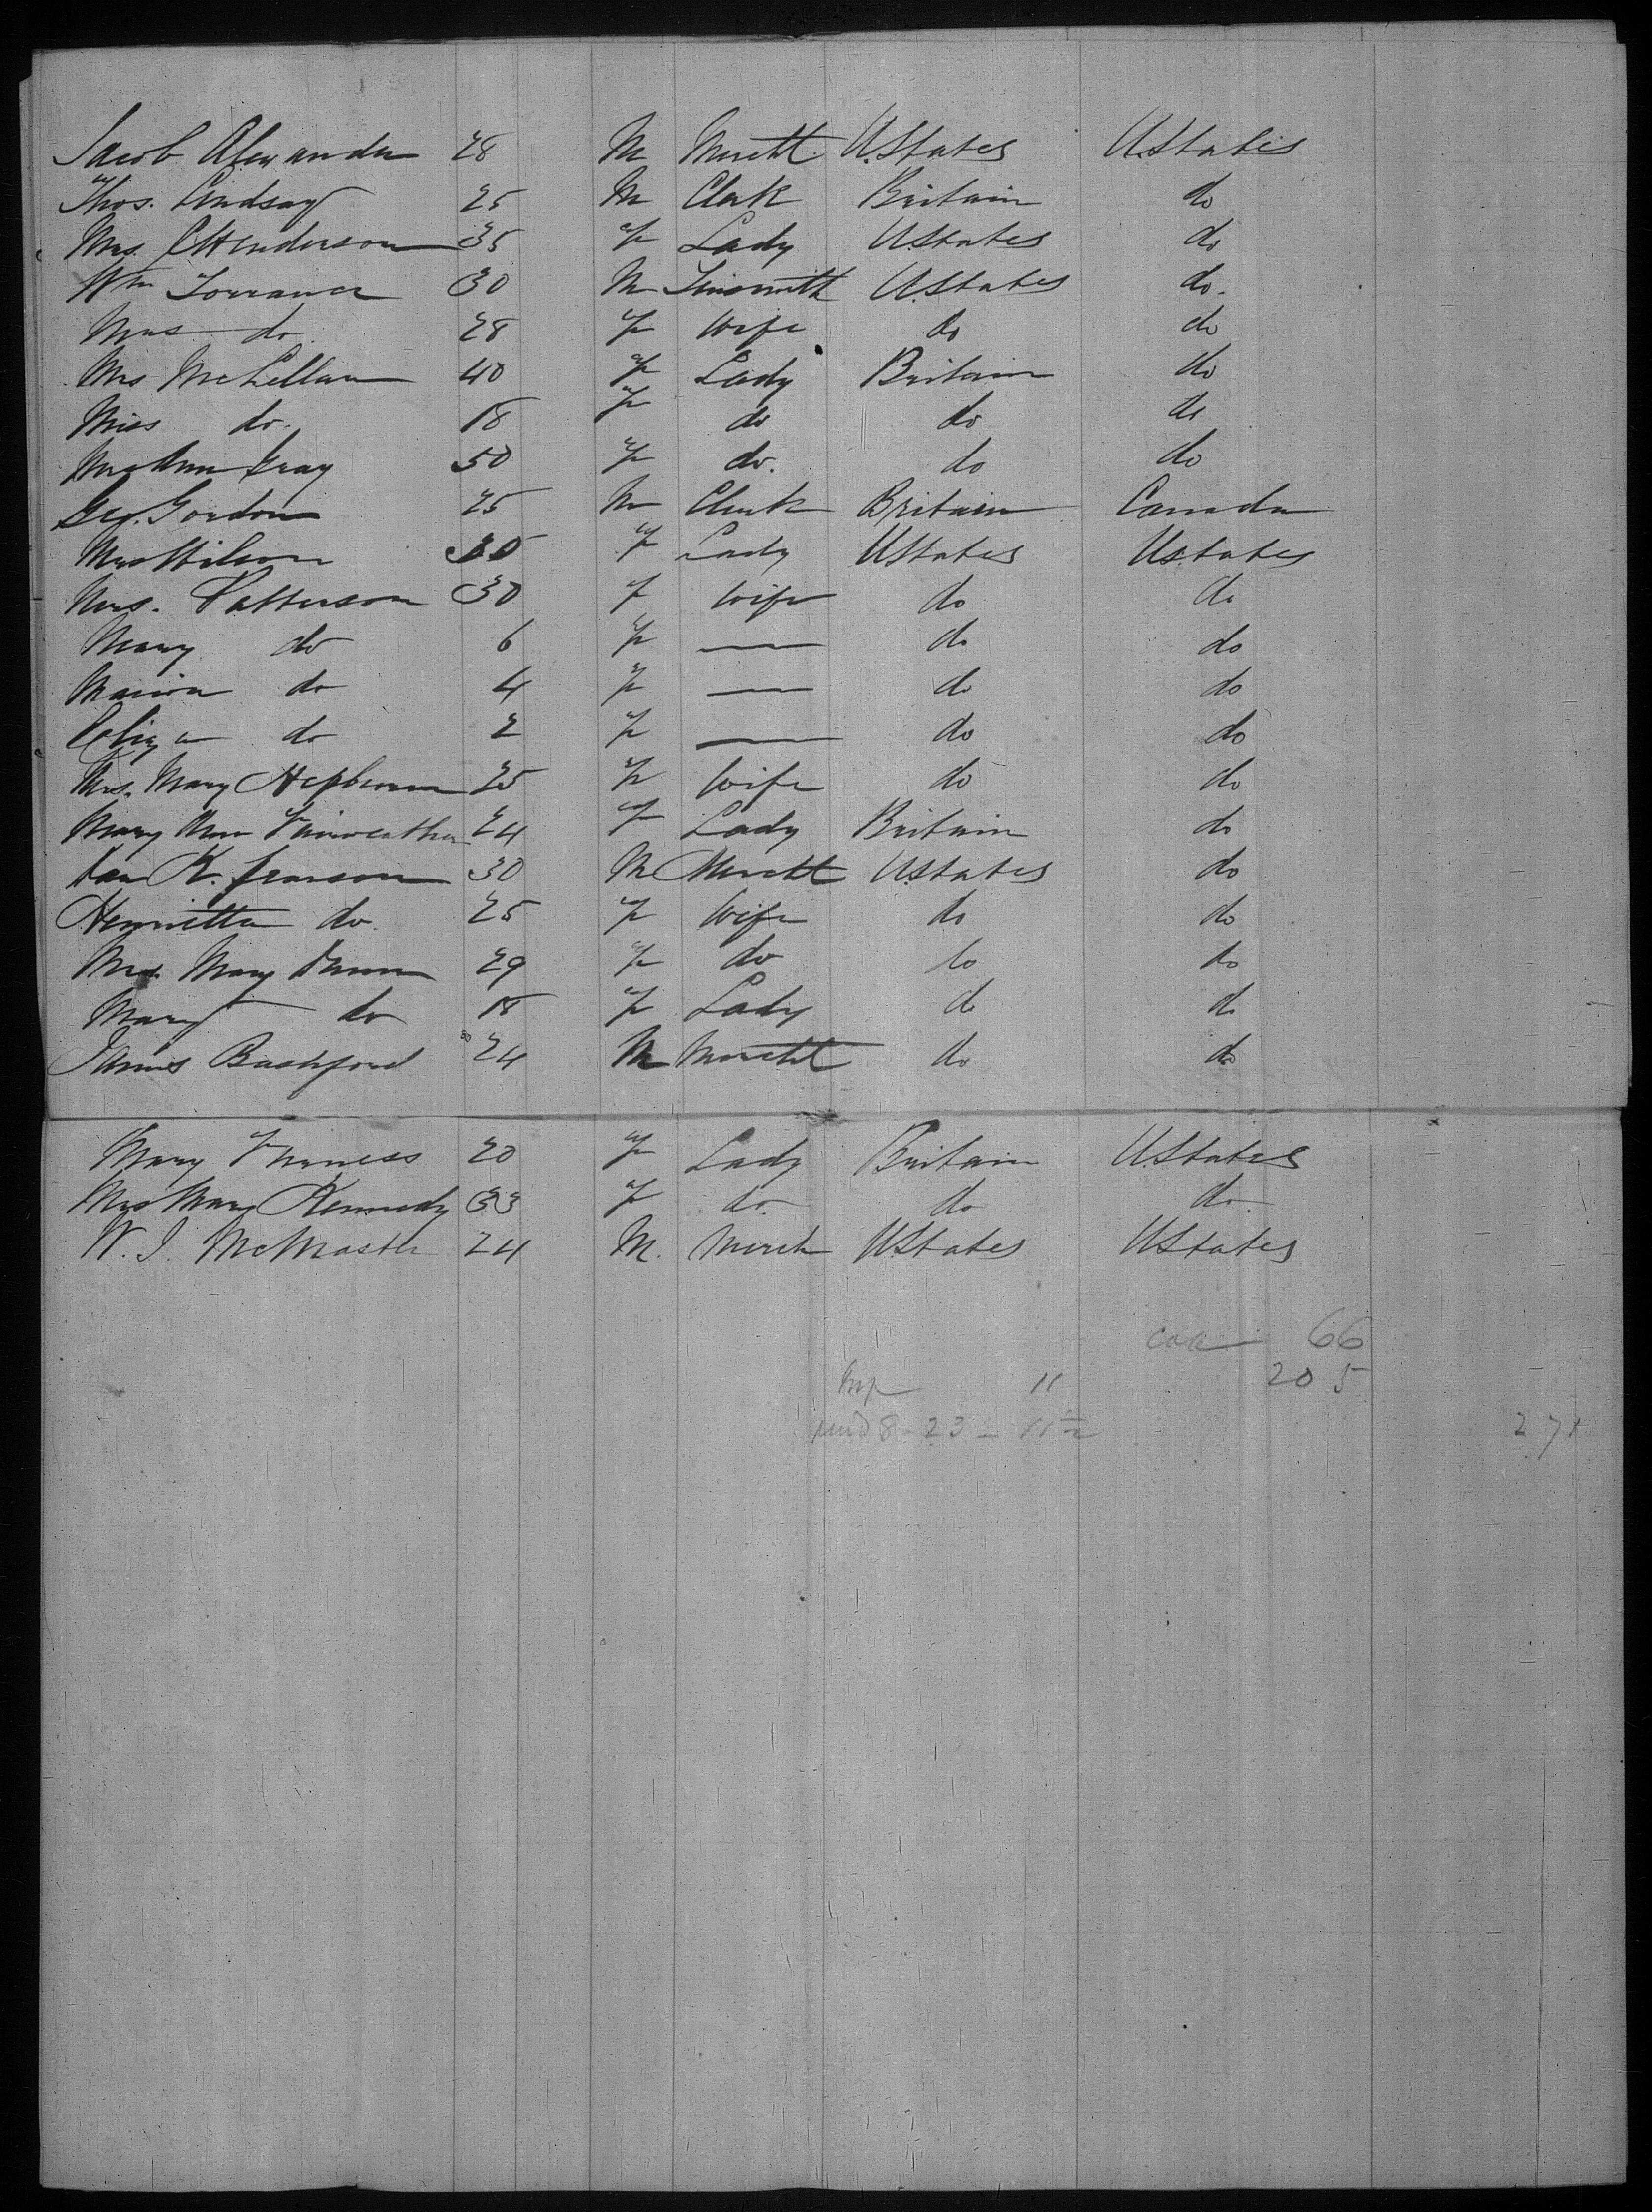 Jacob Alexander 28 M Mercht. U.States U.States
Thos. Lindsay 25 M Clerk Britain do
Mrs. C Henderson 35 F Lady U.States do
Wm Torrance 30 M Tinsmith U.States do.
Mrs do. 28 F Wife do do
Mrs McLellan 40 F Lady Britain do
Miss do. 18 F do do do
Mrs Ann Gray 50 F do. do do
Geo. Gordon 25 M Clerk Britain Canada
Mrs Wilson F Lady UStates UStates
Mrs. Patterson 30 F Wife do do
Mary do 6 F — do do
Marion do 4 F — do do
Eliza do 2 F — do do
Mrs. Mary Hepburn 25 F Wife do do
Mary Ann Fairweather 24 F Lady Britain do
K. 30 M Mercht UStates do
Henrietta do. 25 F Wife do do
Mrs. Mary 29 F do do do
Mary do 18 F Lady do do
James Bashford 24 M Mercht do do
Mary Furness 20 F Lady Britain U.States
Mrs Mary Kennedy 33 F do. do do.
W. J. McMaster 24 M. Merch UStates UStates
66
11 205
8-23-
271